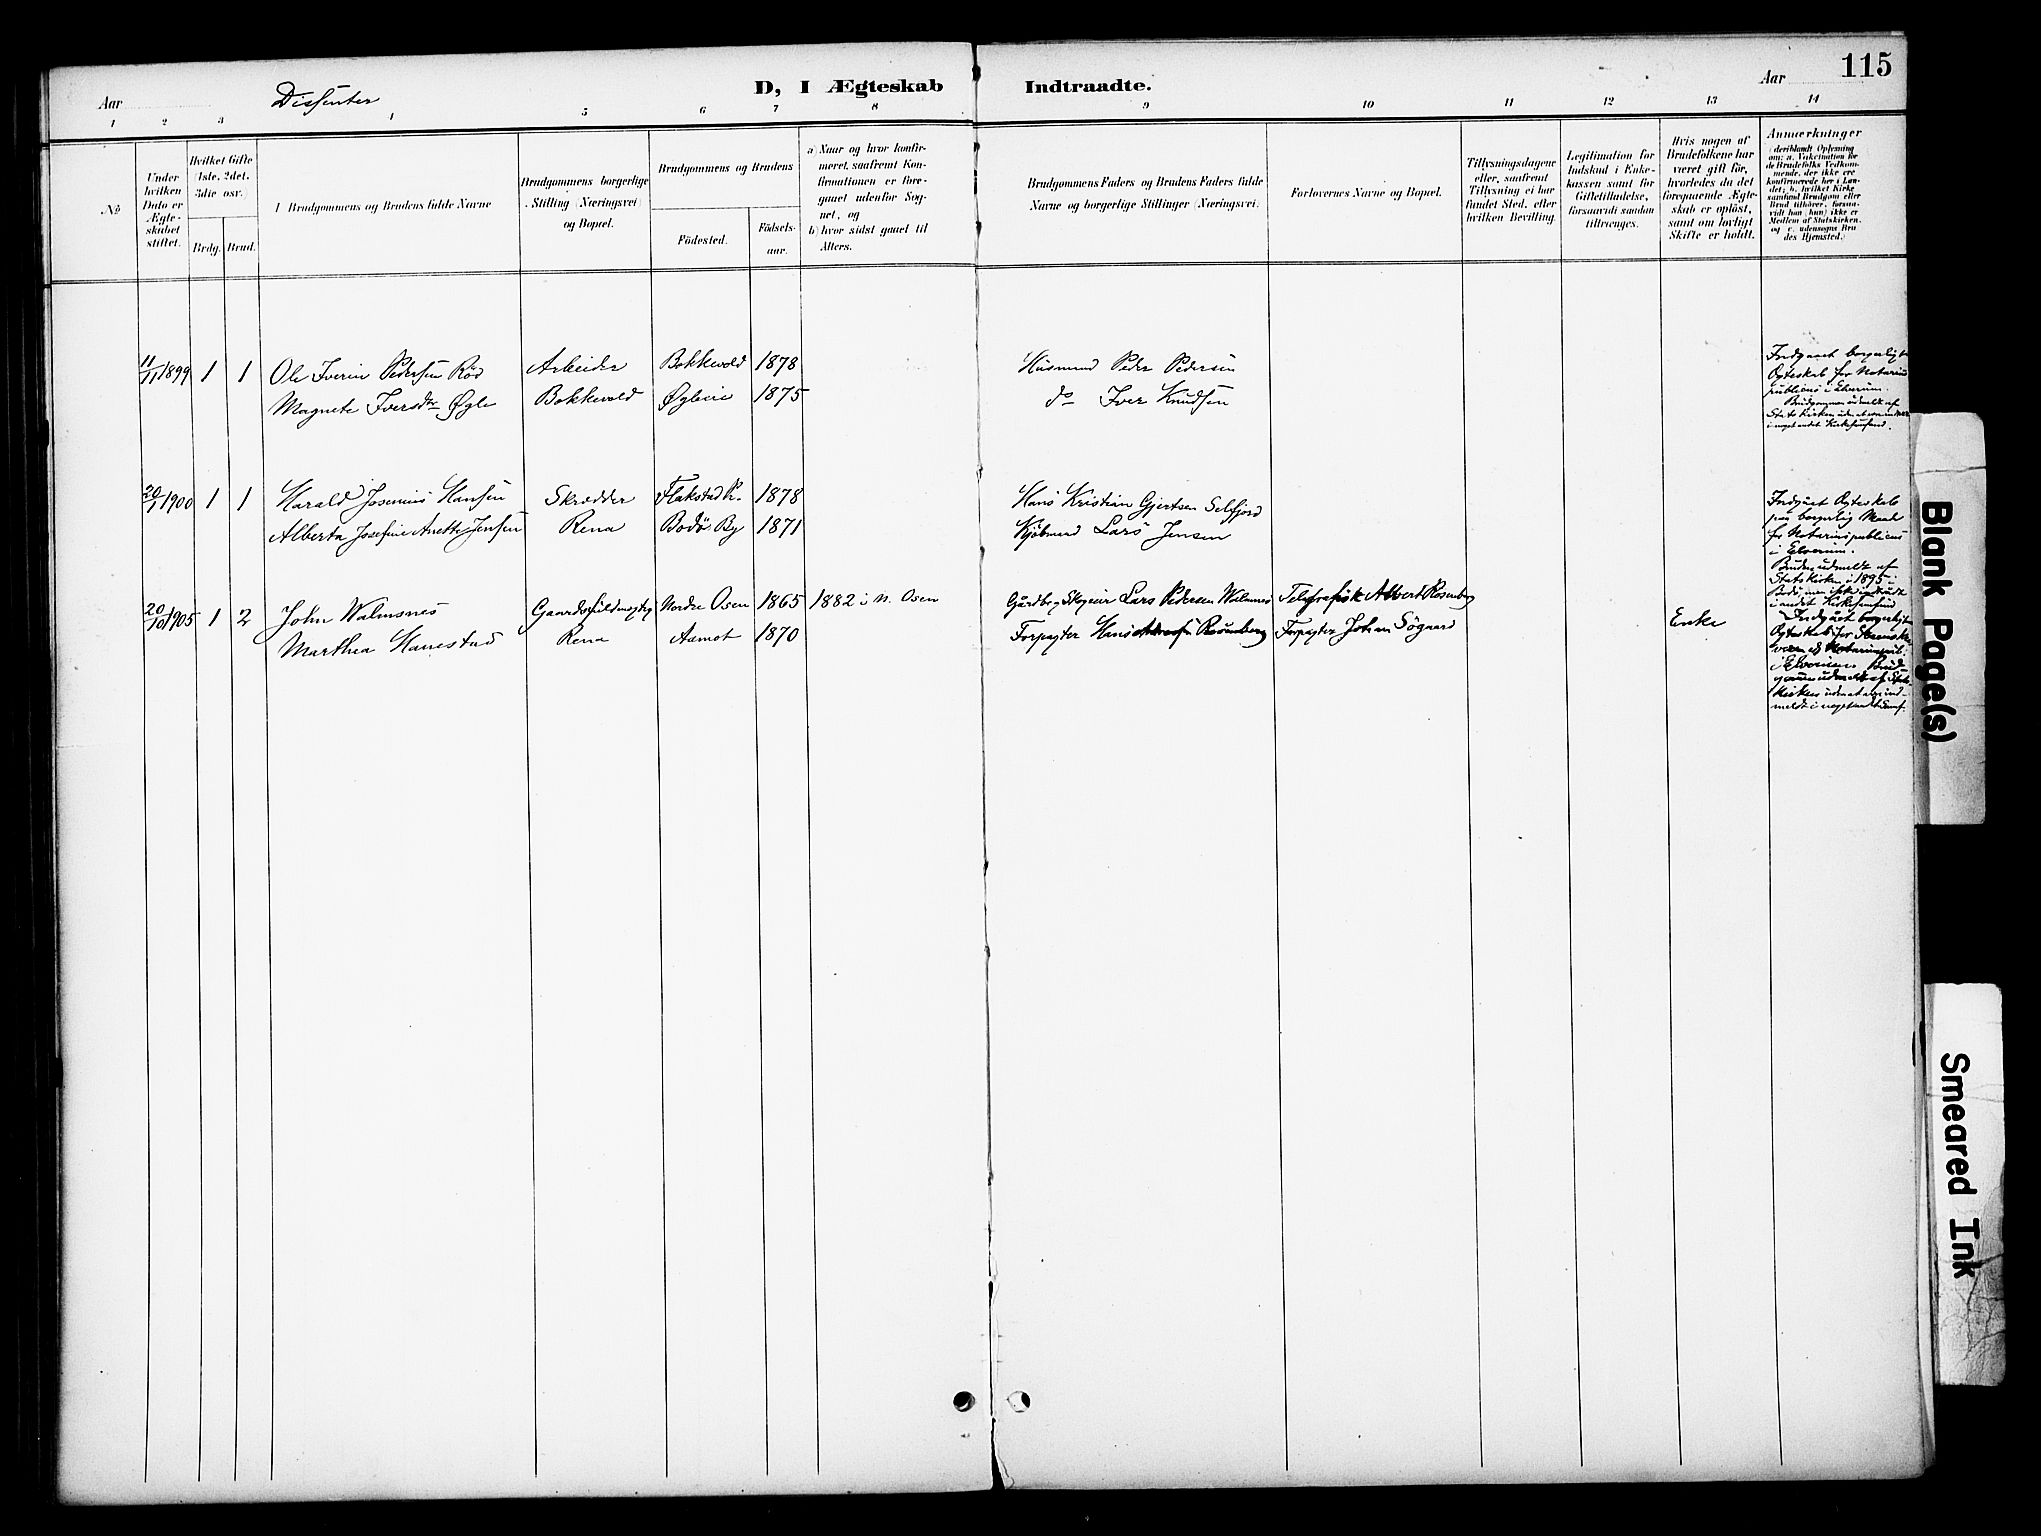 115
Aar
Dissenter
D, I Ægteskab
Indtraadte.
Aar
1 2 3 4 5 6 7 8 9 10 11 12 13 14
No
Under hvilken Dato er Ægteskabet stiftet.
Hvilket Gifte (1ste, 2det, 3die osv.)
Brdg. Brud.
Brudgommens og Brudens fulde Navne
Brudgommens borgerlige Stilling (Næringsvei) og Bopæl.
Brudgommens og Brudens
Födested.
Födselsaar.
a) Naar og hvor konfirmeret, saafremt Konfirmationen er foregaaet udenfor Sognet, og
b) hvor sidst gaaet til Alters.
Brudgommens Faders og Brudens Faders fulde Navne og borgerlige Stillinger (Næringsvei)
Forlovernes Navne og Bopæl.
Tillysningsdagene eller, saafremt Tillysning ei har fundet Sted, efter hvilken Bevilling.
Legitimation for Indskud i Enkekassen samt for Giftetilladelse, forsaavidt saadan tiltrænges.
Hvis nogen af Brudefolkene har været gift för, hvorledes da det foregaaende Ægteskab er oplöst, samt om lovligt Skifte er holdt.
Anmærkninger
(deriblandt Oplysning om: a. Vakcination for de Brudefolks Vedkommende, der ikke ere konfirmerede her i Landet; b. hvilket Kirkesamfund Brudgom eller Brud tilhörer, forsaavidt han (hun) ikke er Medlem af Statskirken, og c. udensogns Brudes Hjemsted.)
11/11 1899 1 1 Ole Iverin Pedersen Röd Arbeider Bokkevold 1878 Husmand Peder Pedersen
Magnete Iversdtr Øgle Bokkevold Øgleie 1875 do Iver Knudsen
Indgaaet borgerligt
Ægteskab for Notarius
publicus i Elverum.
Brudgommen udmeldt af
Statskirken uden at være indm.
i noget andet Kirkesamfund.
20/1 1900 1 1 Harald Josenius Hansen Skrædder Flakstad P. 1878 Hans Kristian Gjertsen Selfjord
Alberta Josefine Anette Jensen Rena Bodö By 1871 Kjöbmand Lars Jensen
Indgaaet Ægteskab
paa borgerlig Maade
for Notarius publicus
i Elverum.
Bruden udmeldt af
Statskirken i 1895 i
Bodö, men ikke indtraadt
i andet Kirkesamfund
20/10 1905 1 2 John Walmsnes Gaardsfuldmægtig Nordre Osen 1865 1882 i N. Osen Gårdbr. og Skogeier Lars Pedersen Walmsnes Telegrafist Albert Rosenberg
Marthea Hanestad Rena Aamot 1870 Forpagter Hans Rosenberg Forpagter Johan Sögaard Enke
Indgåaet borgerligt
Ægteskab for
Notarius publ.
i Elverum. Brudgommen udmeldt af Statskirken uden at være indmeldt i noget andet Samf.
Blank Page(s)
Smeared Ink